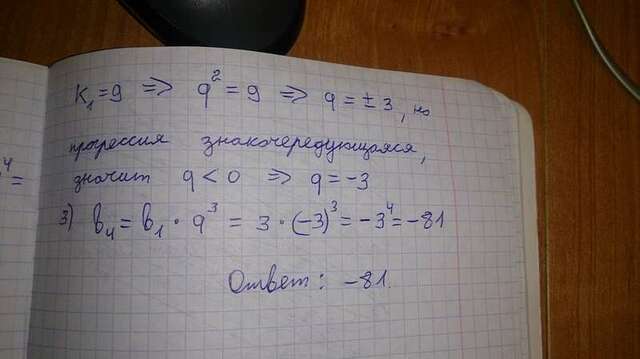 K₁=9 ⇒ q²=9 ⇒ q=±3, но
прогрессия знакочередующаяся,
значит q<0 ⇒ q=-3
3) b₄=b₁·q³=3·(-3)³=-3⁴=-81
Ответ: -81.